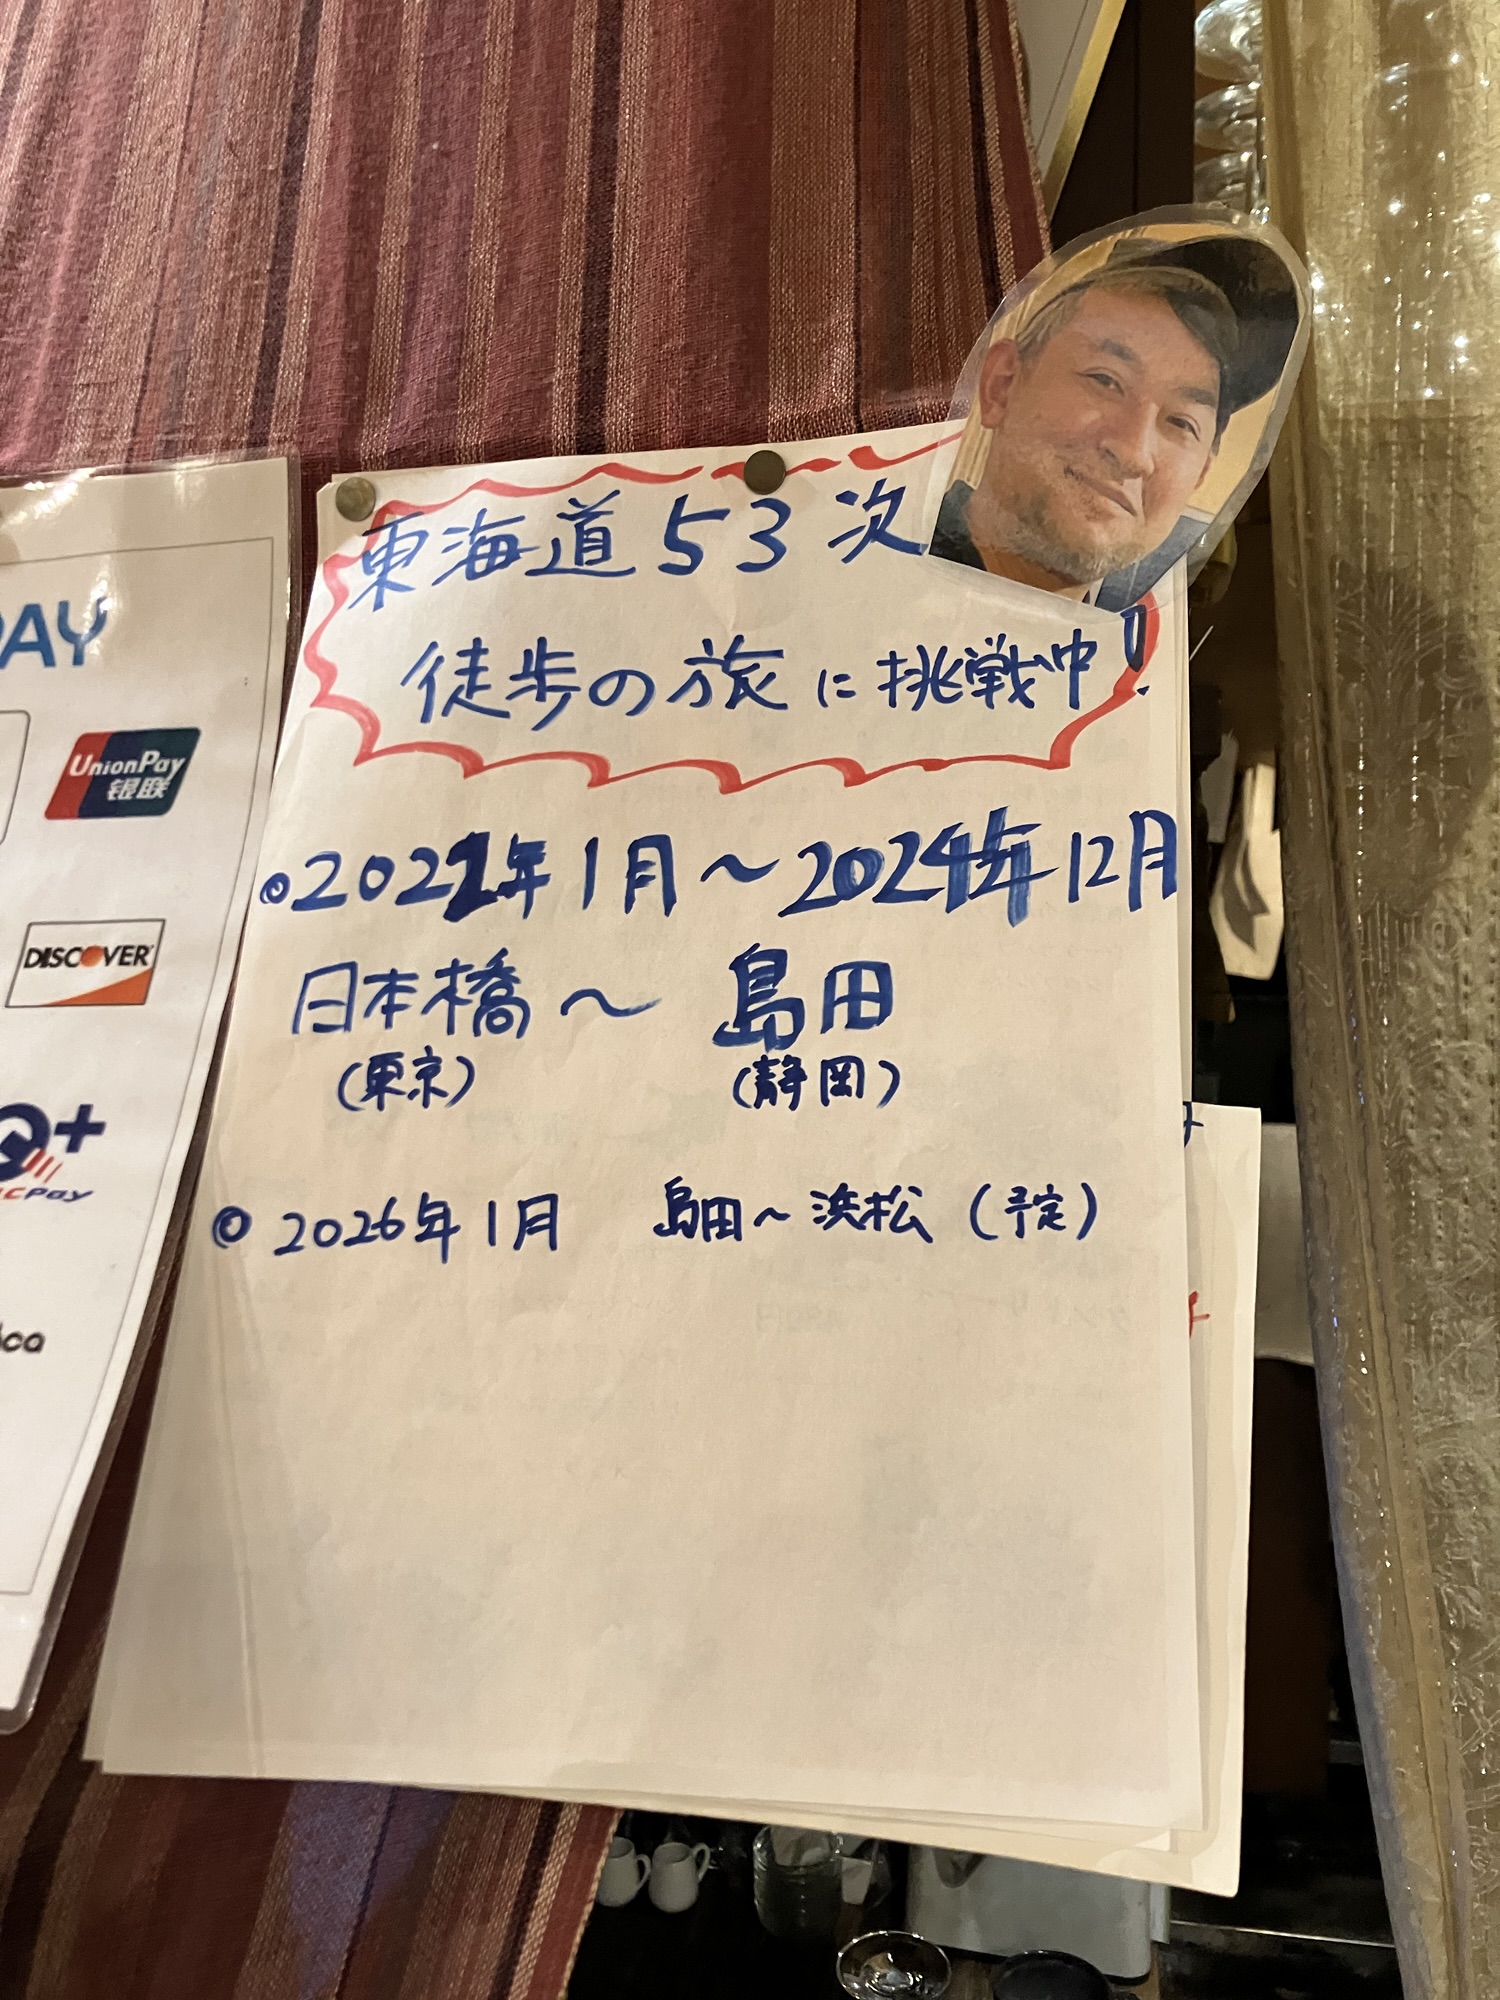 東海道53次
徒歩の旅に挑戦中!
◎2022年1月～2024年12月
日本橋～島田
(東京) (静岡)
◎2026年1月 島田～浜松(予定)
PAY
UnionPay
银联
DISCOVER